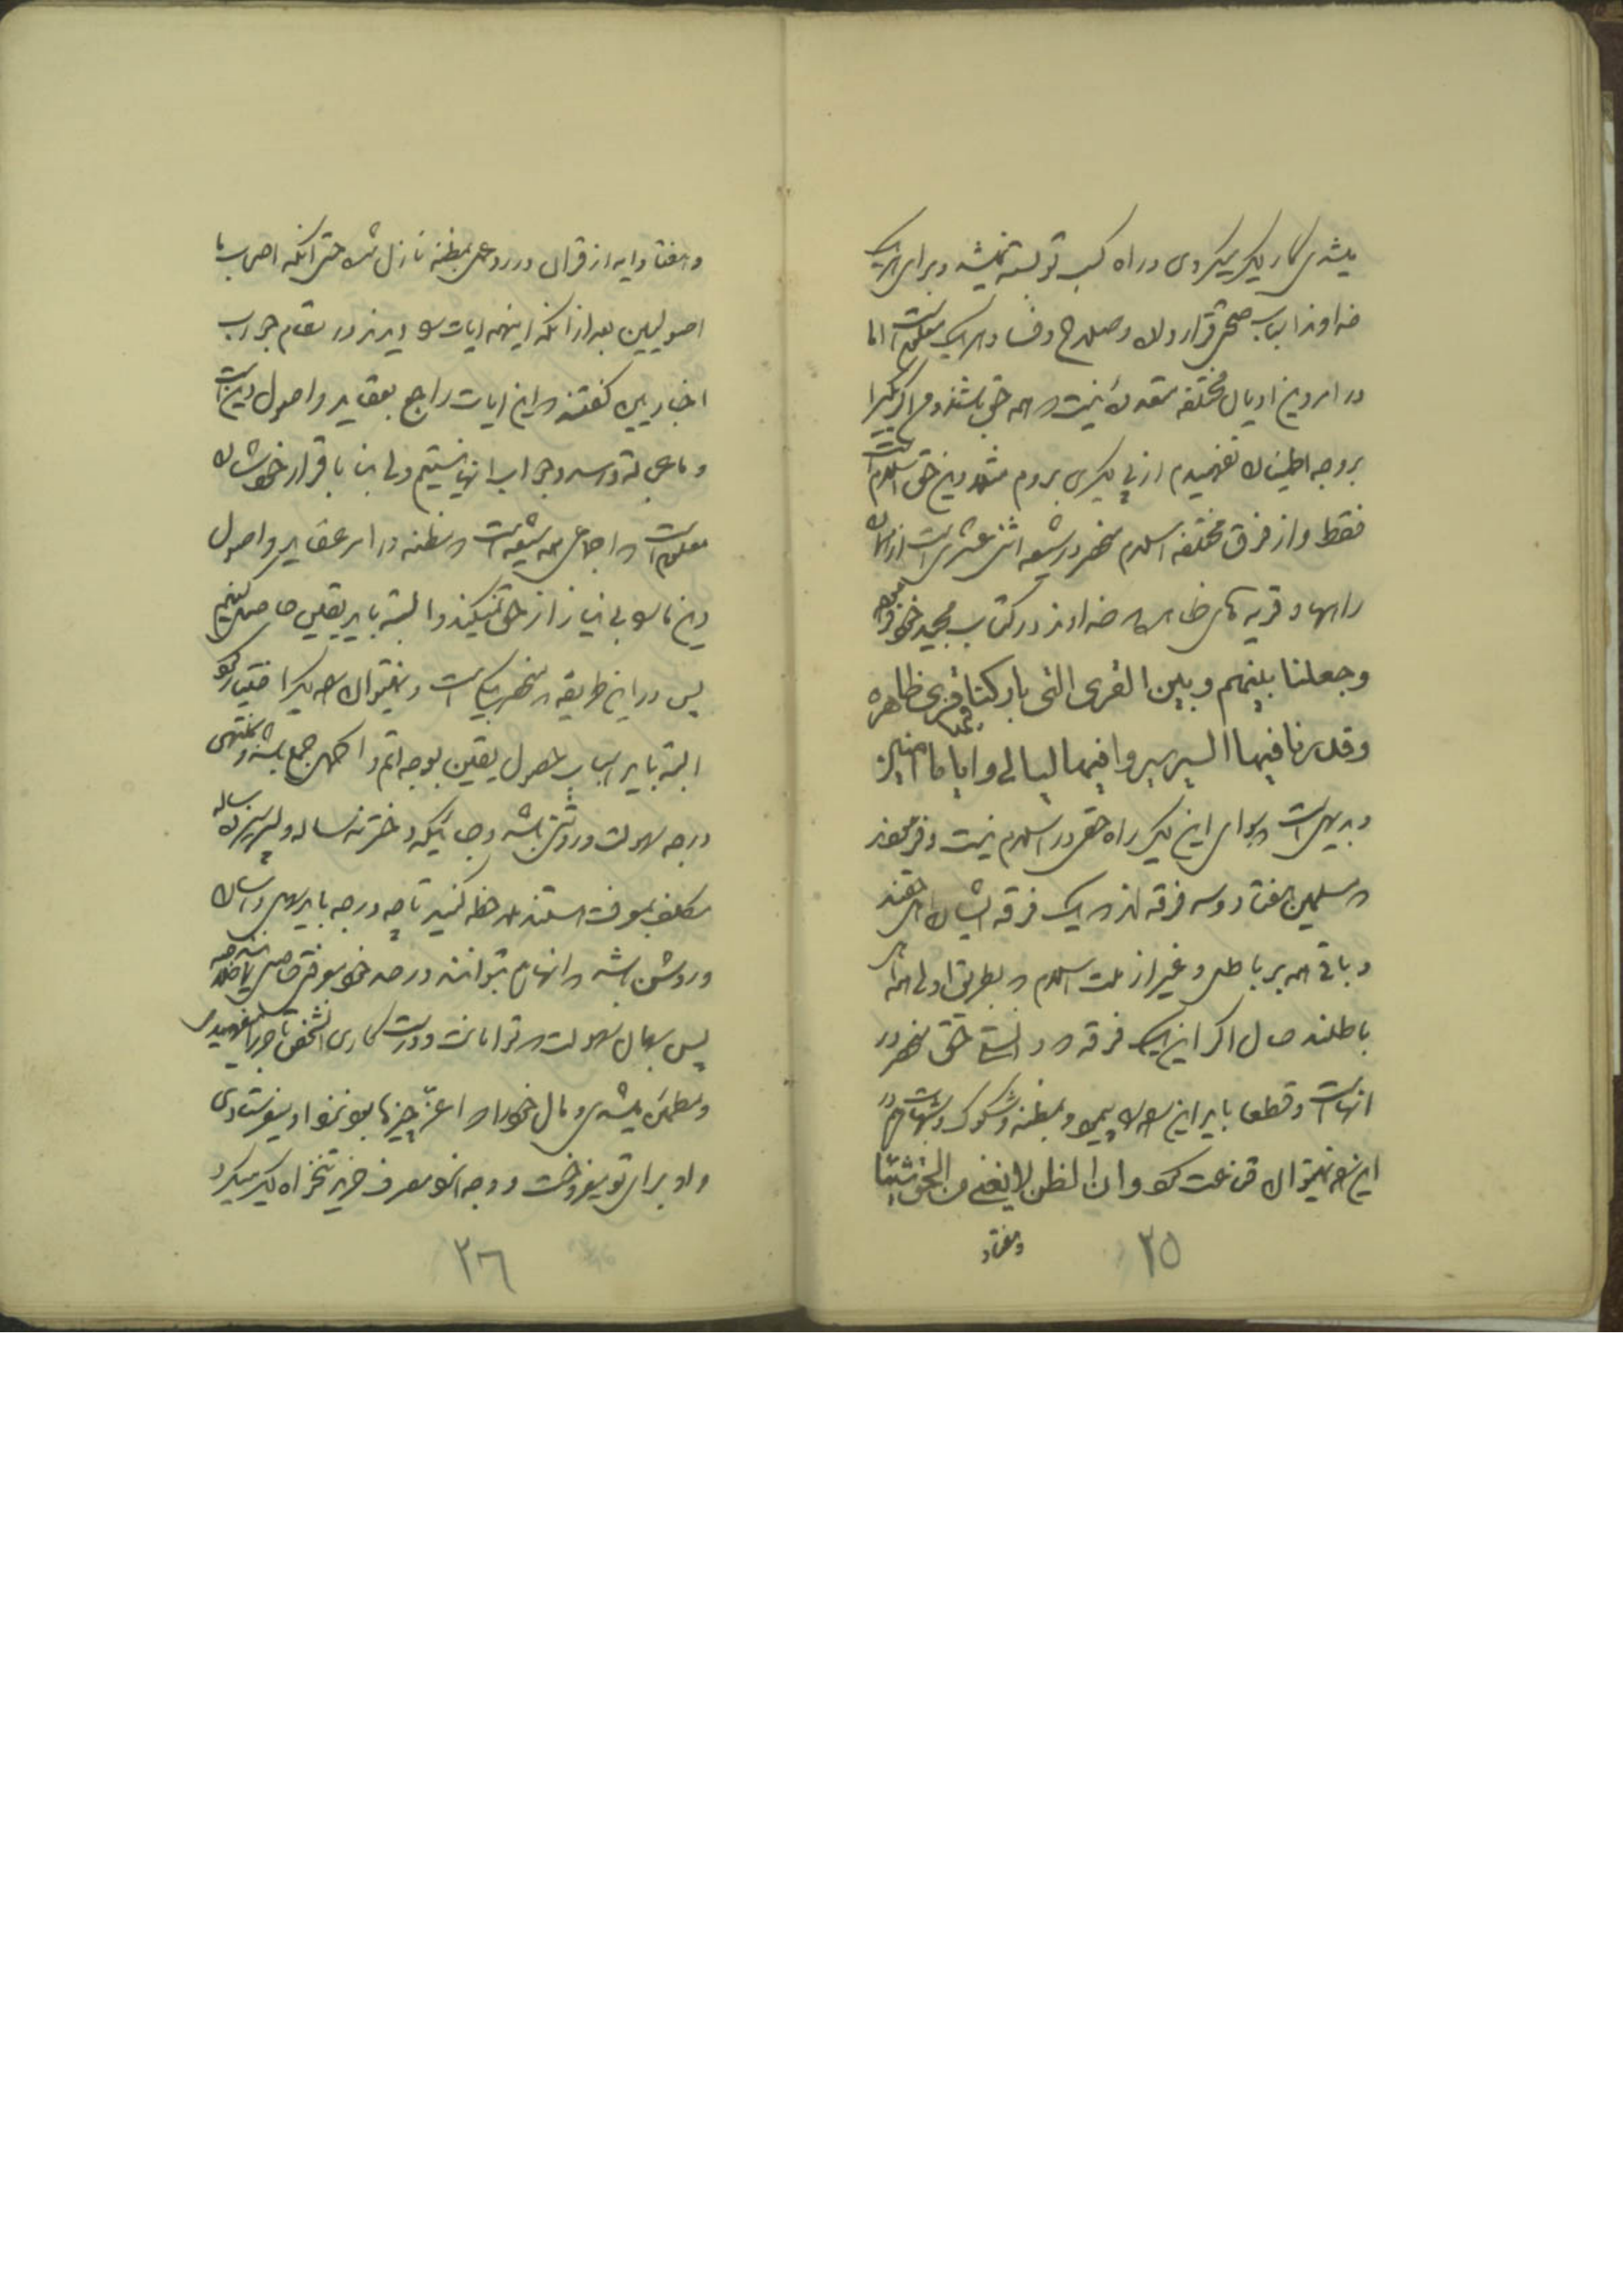 میشدی کار دیگر میکردی در راه کسب تو بسته نمیشد و برای هر یک
خداوند اسباب صحتی قرار داده و صلاح و فساد هر یک معلوم است اما
در امر دین ادیان مختلفه متعدده نیست که همه حق باشند و من اگر یکی را
بر وجه اطمینان نفهمیدم از پی دیگری بروم مثلا دین حق اسلام است
فقط و از فرق مختلفه اسلام منحصر در شیعه اثنی عشری است از
راهها و قریه های ظاهره که خداوند در کتاب مجید خود فرموده
وجعلنا بینهم وبین القری التی بارکنا فیها قری ظاهره
وقدرنا فیها السیر سیروا فیها لیالی وایاما امنین
و بدیهی است که سوای این یک راه حقی در اسلام نیست و فرمودند
که مسلمین هفتاد و سه فرقه اند که یک فرقه ایشان اهل حقند
و باقی همه بر باطل و غیر از ملت اسلام که بطریق اولی همه
باطلند حال اگر این یک فرقه که دانستی حق منحصر در
انهاست و قطعا باید این راه را پیمود و بمظنه و شکوک و شبهات هم در
این راه نمیتوان قناعت کرد وان الظن لا یغنی من الحق شیئا
وهفتاد
۳۵
وهفتاد ایه از قران در رد عمل بمظنه نازل شده حتی انکه اصحاب ما
اصولیین بعد از انکه اینهمه ایات را دیدند در مقام جواب
اخباریین گفتند که این ایات راجع بعقاید و اصول دین است
و ما بحمدالله در صدد جواب انها نیستیم ولی بنا باقرار خودشان
معلوم است که اجماعی همه شیعه است که مظنه در امر عقاید و اصول
دین ما را بی نیاز از حق نمیکند و البته باید یقین حاصل کنیم
پس در این طریقه که منحصر بیک است و نمیتوان راه دیگر اختیار کرد
البته باید اسباب حصول یقین بوجه اتم و اکمل جمع باشد و بمنتهی
درجه سهولت و روشنی باشد و جائیکه دختر نه ساله و پسر پانزده ساله
مکلف بمعرفت هستند ملاحظه کنید تا چه درجه باید سهل و اسان
و روشن باشد که انها هم بتوانند در حد خود معرفتی حاصل نمایند
پس بهمان سهولت که تو امانت و درست کاری انشخص تاجر را میفهمیدی
و مطمئن میشدی و مال خود را که اعز چیزها بود نزد او میفرستادی
و او برای تو میفروخت و وجه انرا مصرف خرید تنخواه دیگر میکرد
۳۶